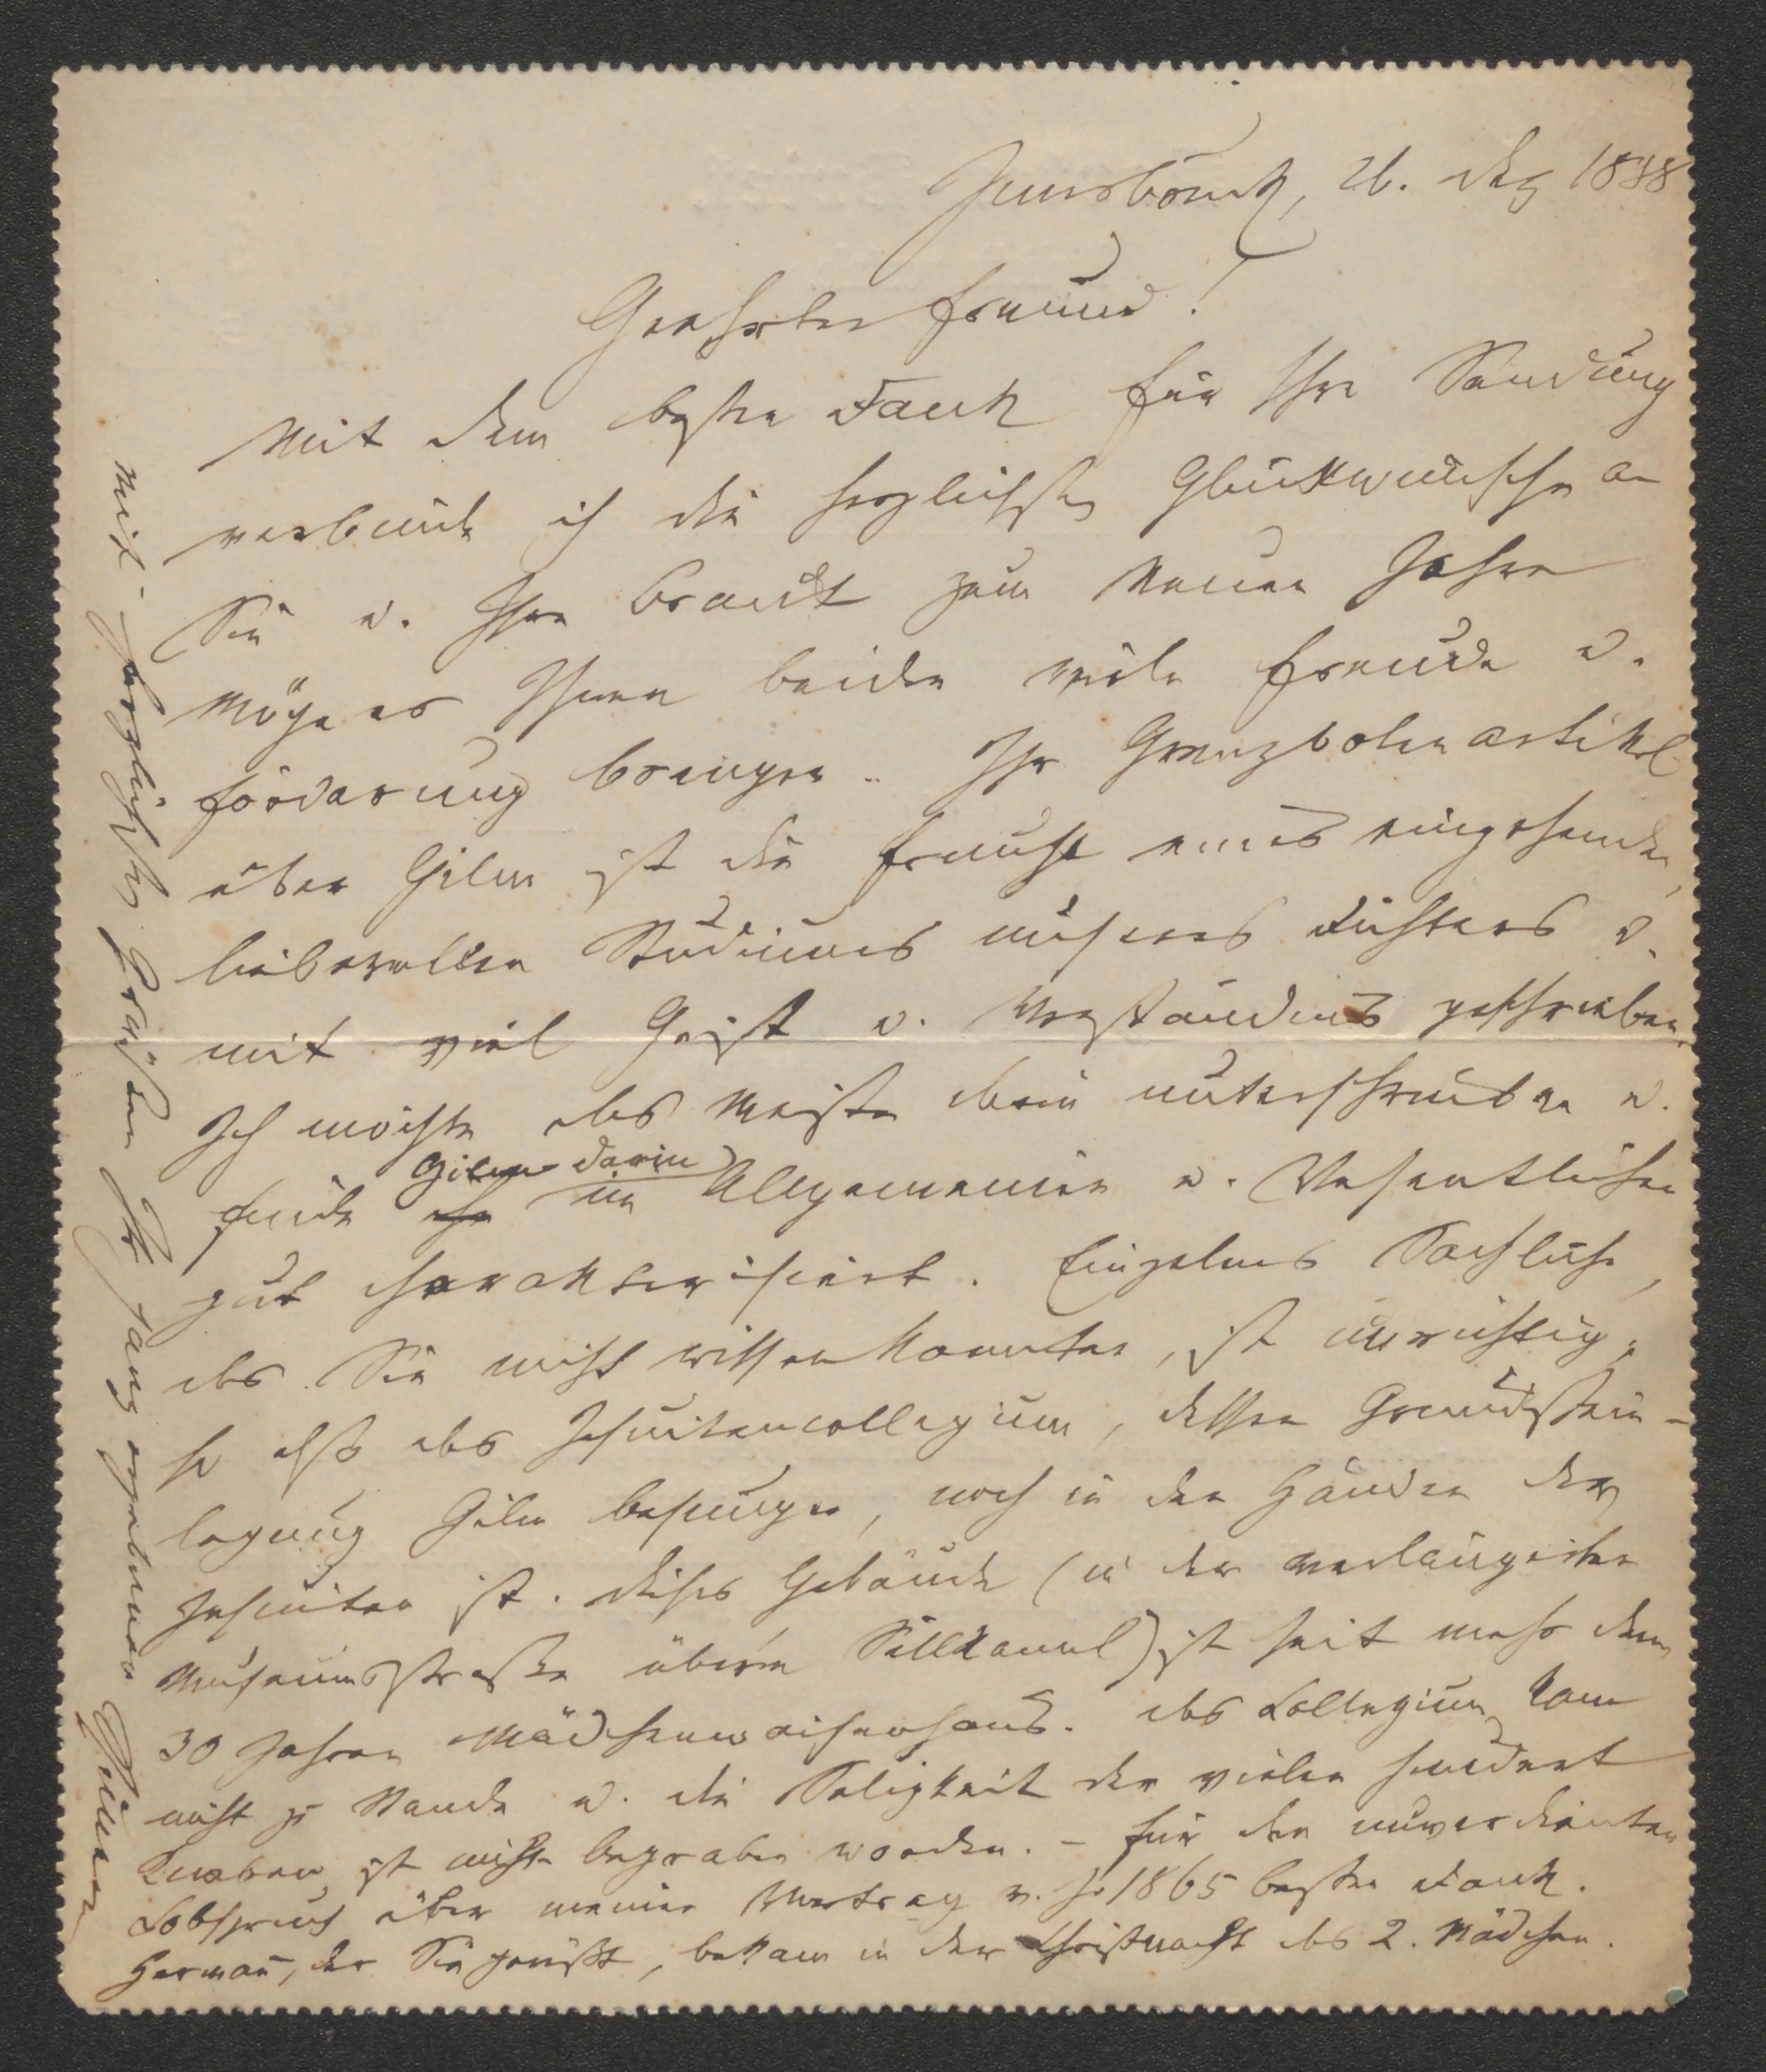 Innsbruck, 26. Dez 1888
Geehrter Freund!
Mit dem besten Dank für Ihre Sendung
verbinde ich die herzlichsten Glückwünsche an
Sie u. Ihre Braut zum Neuen Jahre
Möge es Ihnen beiden viele Freude u.
Förderung bringen. Ihr Grenzbotenartikel
über Gilm ist die Frucht eines eingehenden,
liebevollen Studiums unseres Dichters u.
mit viel Geist u. Verständnis geschrieben.
Ich möchte das Meiste drin unterschreiben u.
finde Gilm darin im Allgemeinen u. Wesentlichen
gut charakterisiert. Einzelnes Sachliche,
das Sie nicht wissen konnten, ist unrichtig,
so daß das Jesuitencollegium, dessen Grundstein-
legung Gilm besungen, noch in den Händen der
Jesuiten ist. Dieses Gebäude (in der verlängerten
Museumsstraße über'm Sillkanal) ist seit mehr denn
30 Jahren Mädchenwaisenhaus. Das Collegium kam
nicht zu Stande u. die Seligkeit der vielen hundert
Knaben ist nicht begraben worden. – Für den unverdienten
Lobspruch über meinen Vortrag v. J. 1865 besten Dank.
Hermann, der Sie grüßt, bekam in der Christnacht das 2. Mädchen.
Mit herzlichsten Grüßen Ihr ganz ergebener